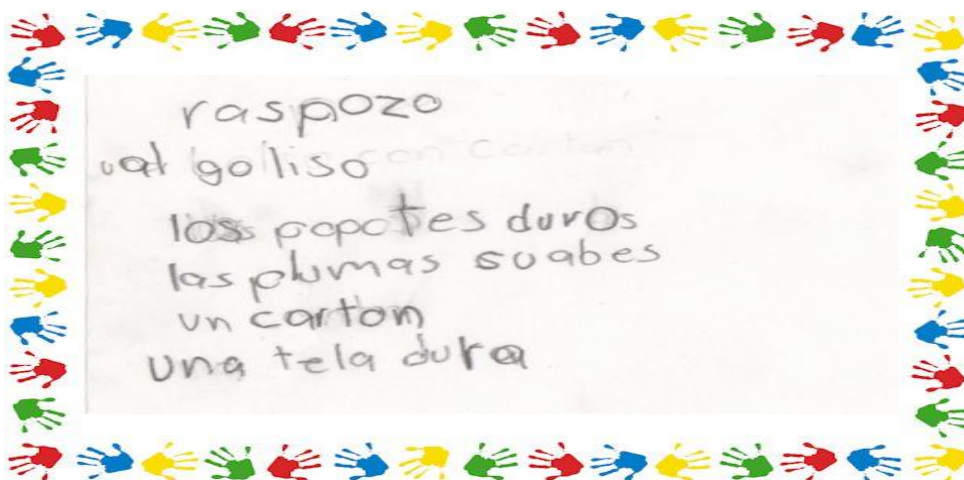 raspozo
algo liso con carton
los popotes duros
las plumas suabes
un carton
una tela dura